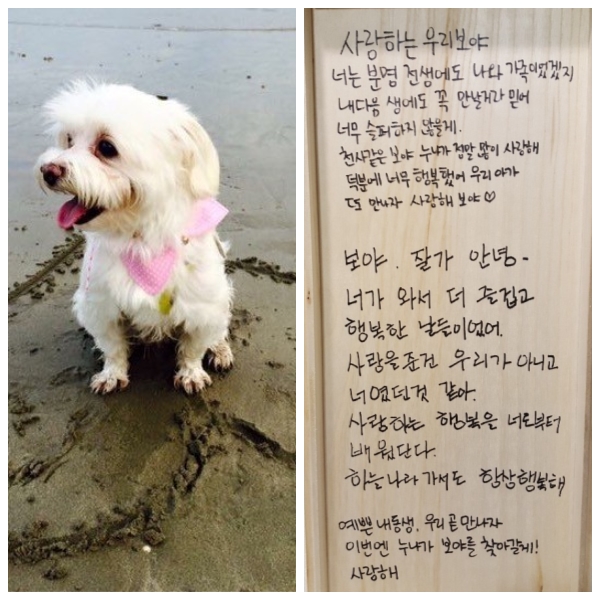 사랑하는 우리보야
너는 분명 전생에도 나와 가족이었겠지
내다음 생에도 꼭 만날거라 믿어
너무 슬퍼하지 않을게.
천사같은 보야 누나가 정말 많이 사랑해
덕분에 너무 행복했어 우리 아가
또 만나자 사랑해 보야♡
보야. 잘가 안녕-
너가 와서 더 즐겁고
행복한 날들이었어.
사랑을 준건 우리가 아니고
너였던것 같아.
사랑하는 행복을 너로부터
배웠단다.
하늘나라 가서도 항상행복해
예쁜 내동생, 우리 곧 만나자
이번엔 누나가 보야를 찾아갈게!
사랑해